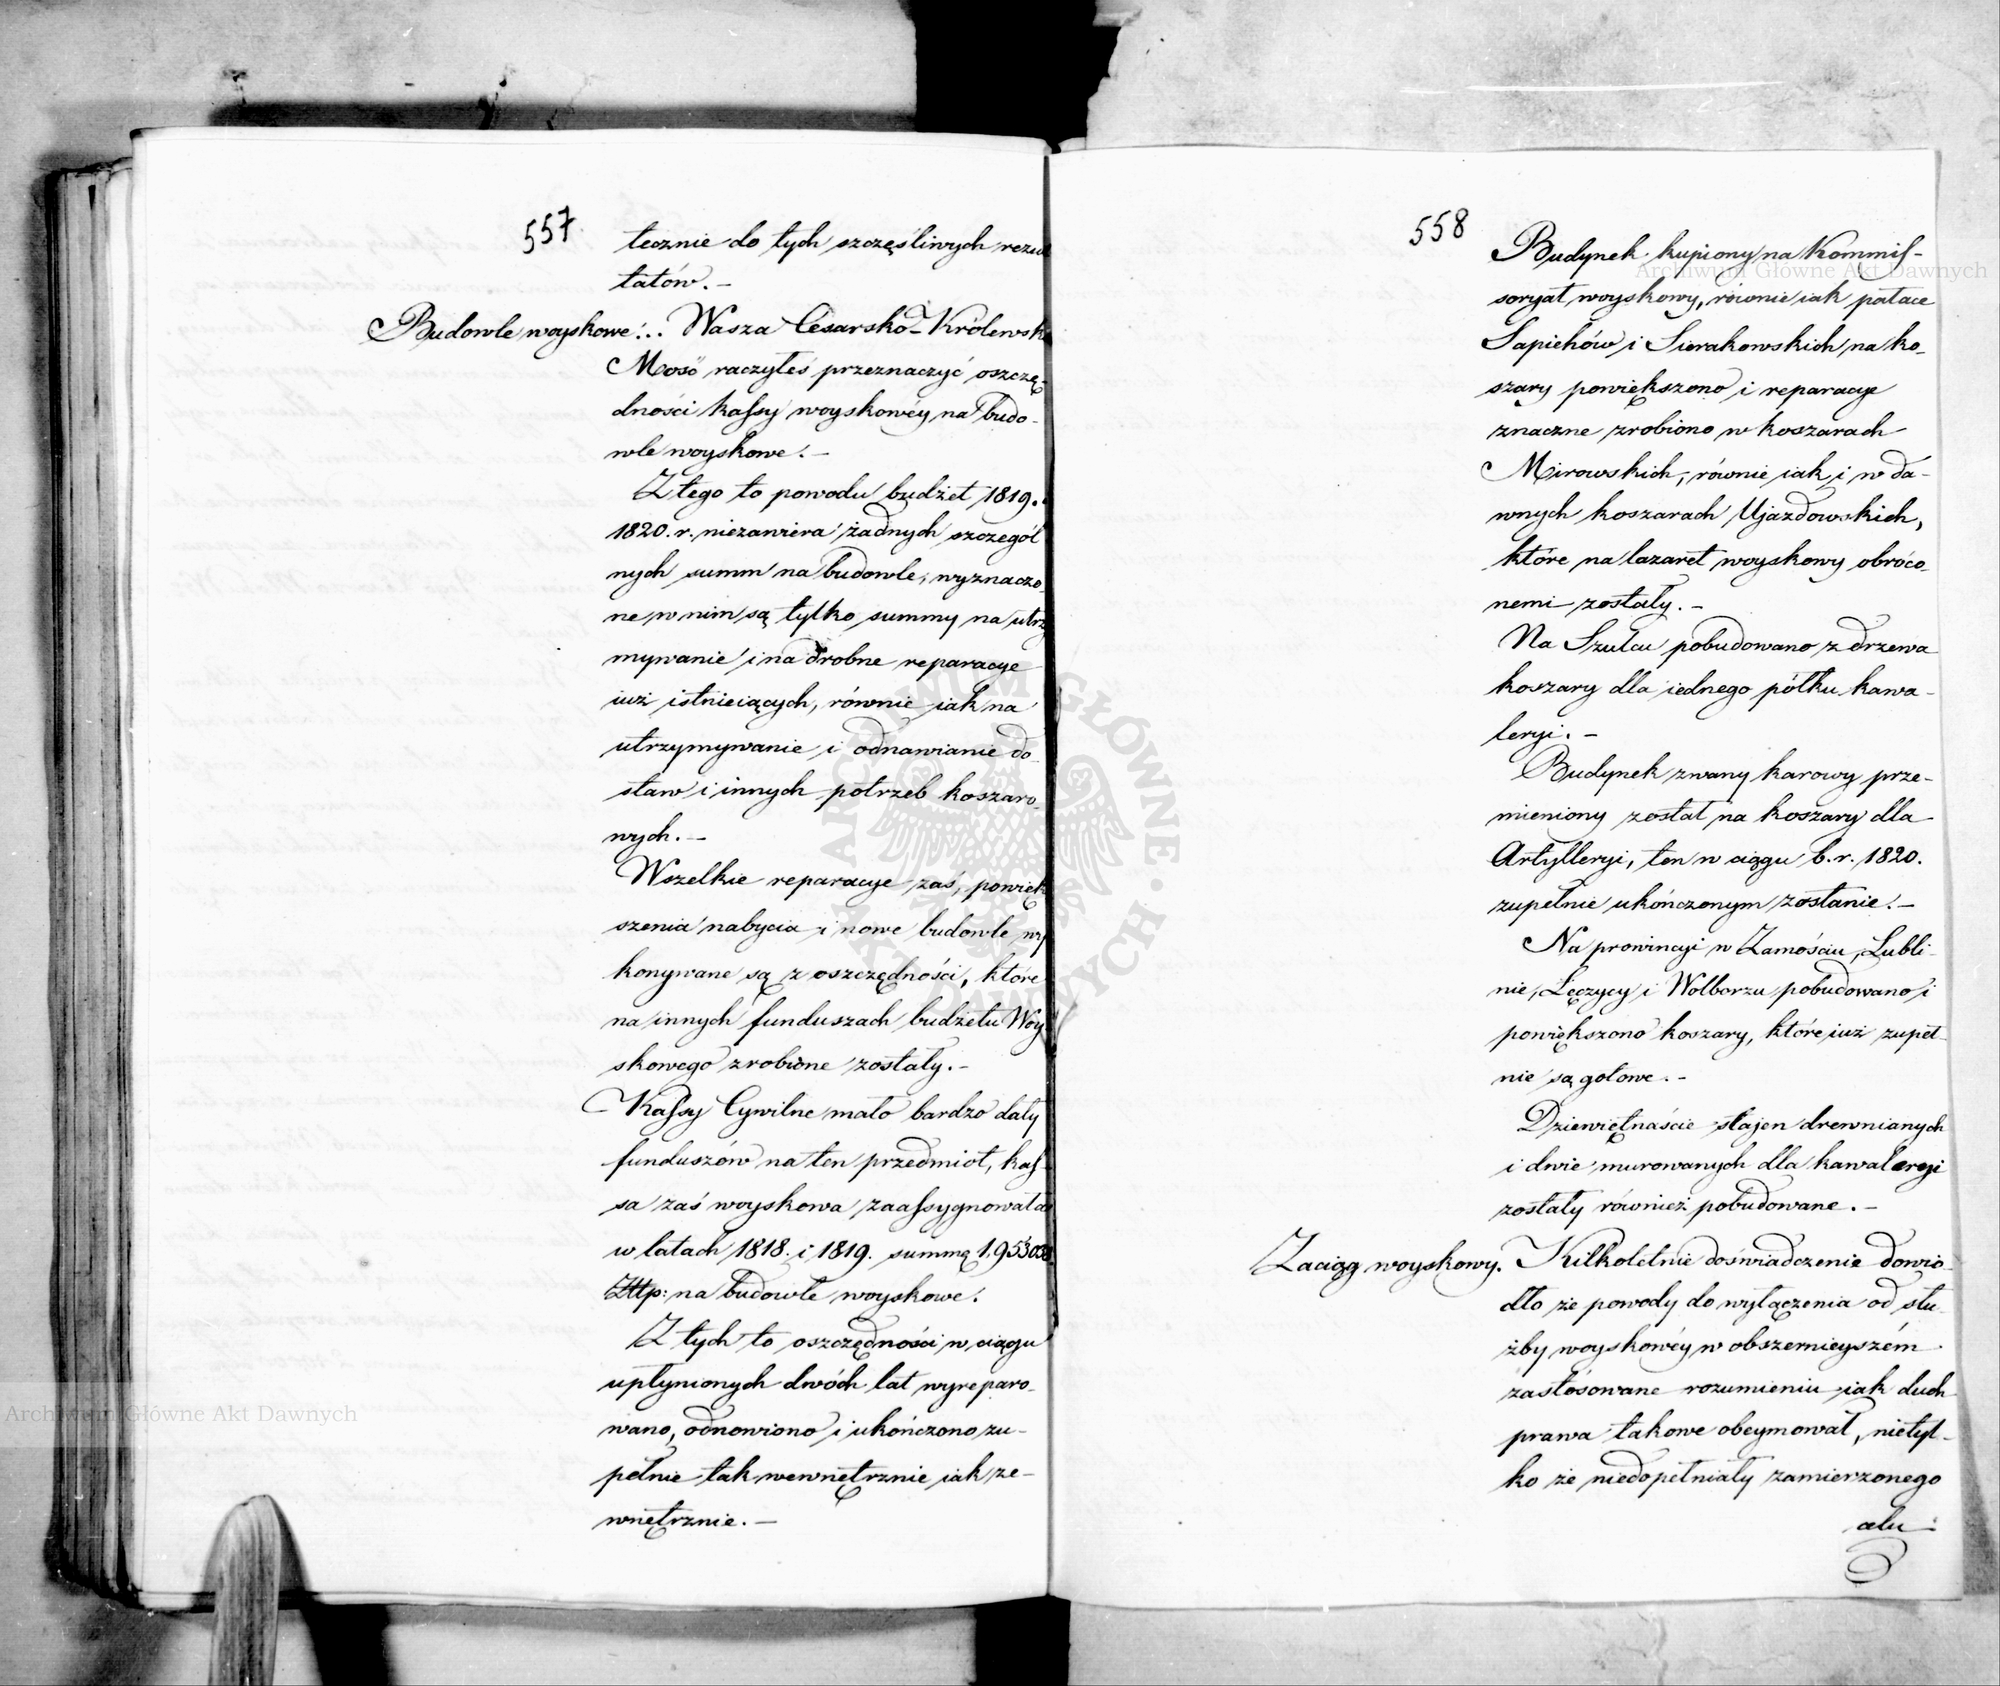 557.
tecznie do tych szczęśliwych rezul
tatów. –
Budowle woyskowe... Wasza Cesarsko-Królewska
Mość raczyłeś przeznaczyć oszczę-
dności kassy woyskowéy na budo-
wle woyskowe. –
Z tego to powodu budżet 1819.
1820. r. niezawiera żadnych szczegól
nych summ na budowle, wyznaczo
ne w nim są tylko summy na utrzy
mywanie i na drobne reparacye
iuż istnieiących, równie iak na
utrzymywanie i odnawianie do-
staw i innych potrzeb koszaro-
wych. –
Wszelkie reparacye zaś, powięk
szenia nabycia i nowe budowle wy
konywane są z oszczędności, które
na innych funduszach budżetu Woy
skowego zrobione zostały. –
Kassy Cywilne mało bardzo dały
funduszów na ten przedmiot, kas-
sa zaś woyskowa zaassygnowała
w latach 1818. i 1819. summę
Złłp: na budowle woyskowe.
Z tych to oszczędności w ciągu
upłynionych dwóch lat wyreparo-
wano, odnowiono i ukończono zu-
pełnie tak wewnętrznie iak ze-
wnętrznie. –
558
Budynek kupiony na Kommis-
soryat woyskowy, równie iak pałace
Sapiehów i Sierakowskich na ko-
szary powiększono i reparacye
znaczne zrobiono w koszarach
Mirowskich, równie iak i w da-
wnych koszarach Ujazdowskich,
które na lazaret woyskowy obróco-
nemi zostały. –
Na Szulcu pobudowano z drzewa
koszary dla iednego pólku kawa-
leryi. –
Budynek zwany karowy prze-
mieniony został na koszary dla
Artylleryi, ten w ciągu b. r. 1820.
zupełnie ukończonym zostanie. –
Na prowincyi w Zamościu, Lubli-
nie, Łęczycy i Wolborzu pobudowano i
powiększono koszary, które iuż zupeł-
nie są gotowe. –
Dziewiętnaście stajen drewnianych
i dwie murowanych dla kawaleryi
zostały również pobudowane. –
Zaciąg woyskowy. Kilkoletnie doświadczenie dowio-
dło że powody do wyłączenia od słu-
żby woyskowéy w obszernieyszém
zastósowane rozumieniu iak duch
prawa takowe obeymował, nietyl-
ko że niedopełniały zamierzonego
celu
Archiwum Główne Akt Dawnych
Archiwum Główne Akt Dawnych
ARCHIWUM GŁÓWNE AKT DAWNYCH